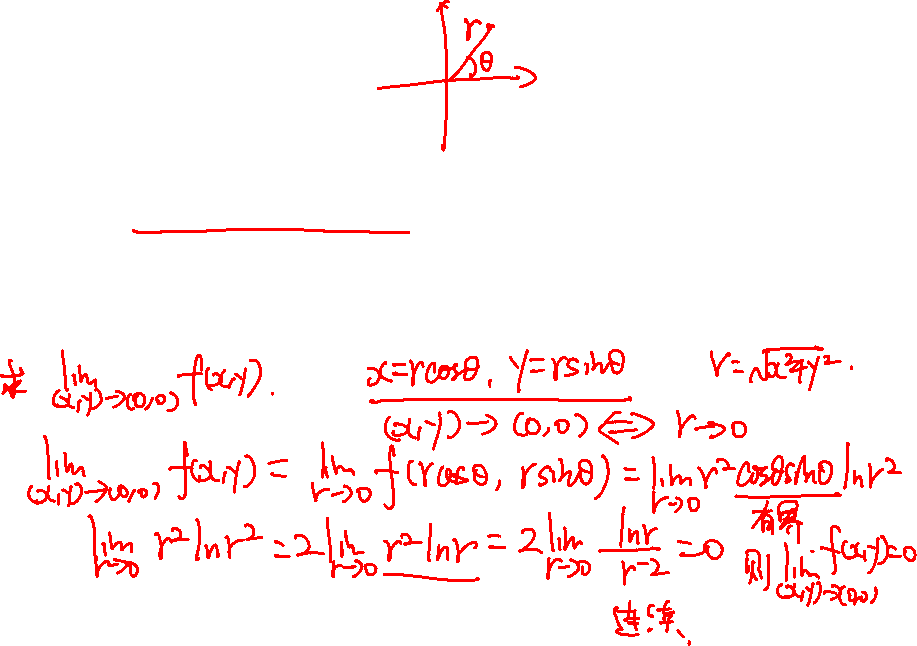 r
θ
求 lim_{(x,y)→(0,0)} f(x,y). x=rcosθ, y=rsinθ r=√(x²+y²).
(x,y)→(0,0) ⟺ r→0
lim_{(x,y)→(0,0)} f(x,y) = lim_{r→0} f(rcosθ, rsinθ) = lim_{r→0} r² cosθsinθ ln r²
有界
lim_{r→0} r² ln r² = 2 lim_{r→0} r² ln r = 2 lim_{r→0} \frac{ln r}{r^{-2}} = 0 则 lim_{(x,y)→(0,0)} f(x,y)=0
连续、